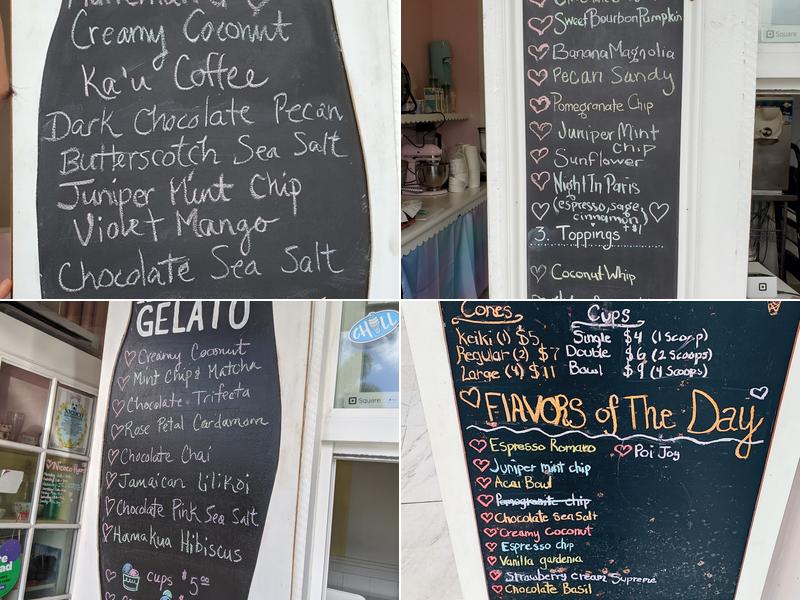 Creamy Coconut
Ka'u Coffee
Dark Chocolate Pecan
Butterscotch Sea Salt
Juniper Mint Chip
Violet Mango
Chocolate Sea Salt
Sweet Bourbon Pumpkin
Banana Magnolia
Pecan Sandy
Pomegranate Chip
Juniper Mint
Chip
Sunflower
Night In Paris
(espresso, sage,
cinnamon)
3. Toppings +$1
Coconut Whip
Square
GELATO
Creamy Coconut
Mint Chip & Matcha
Chocolate Trifecta
Rose Petal Cardamom
Chocolate Chai
Jamaican Lilikoi
Chocolate Pink Sea Salt
Hamakua Hibiscus
cups $5.00
CHILL
Square
Cones Cups
Keiki (1) $5 Single $4 (1 scoop)
Regular (2) $7 Double $6 (2 scoops)
Large (4) $11 Bowl $9 (4 scoops)
FLAVORS of The Day
Espresso Romano Poi Joy
Juniper mint chip
Acai Bowl
Pomegranite chip
Chocolate sea salt
Creamy Coconut
Espresso chip
Vanilla gardenia
Strawberry cream Supreme
Chocolate Basil